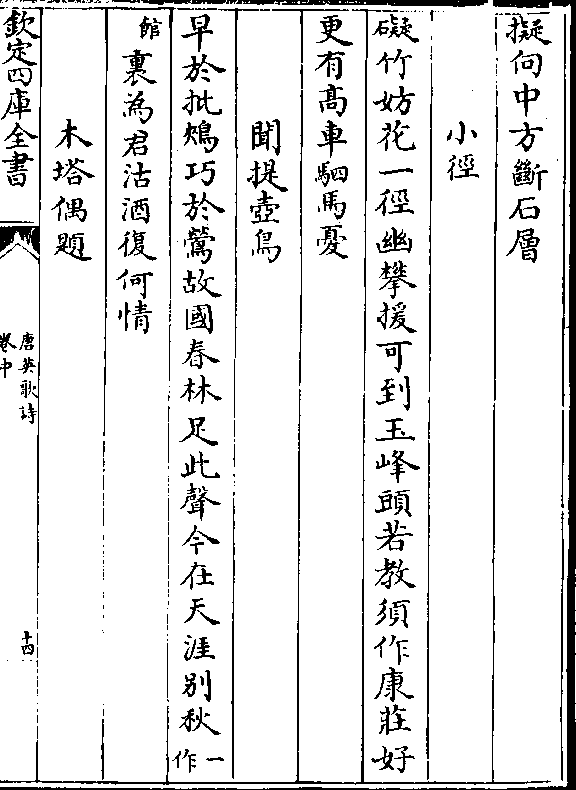 擬向中方斷石層
小徑
礙竹妨花一徑幽攀援可到玉峰頭若教須作康莊好
更有髙車駟馬憂
聞提壺鳥
早於批鵊巧於鶯故國春林足此聲今在天涯别秋一作
館裏為君沽酒復何情
木塔偶題
欽定四庫全書
唐英歌詩
卷中
十四